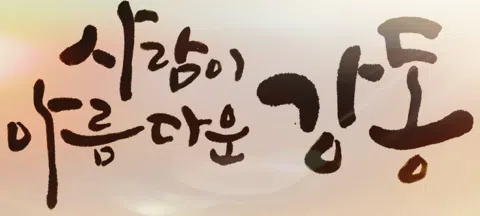 사람이
아름다운
강동